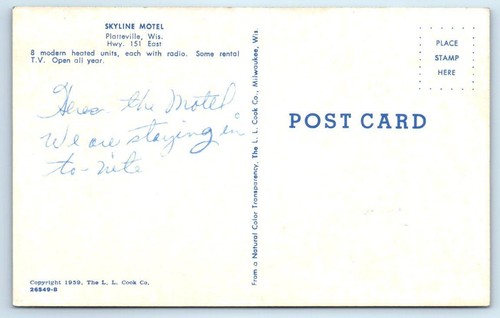 SKYLINE MOTEL
Platteville, Wis.
Hwy. 151 East
8 modern heated units, each with radio. Some rental
T.V. Open all year.
Heres the Motel
We are staying in
to-nite
Copyright 1959, The L. L. Cook Co.
26549-B
From a Natural Color Transparency, The L. L. Cook Co., Milwaukee, Wis.
POST CARD
PLACE
STAMP
HERE